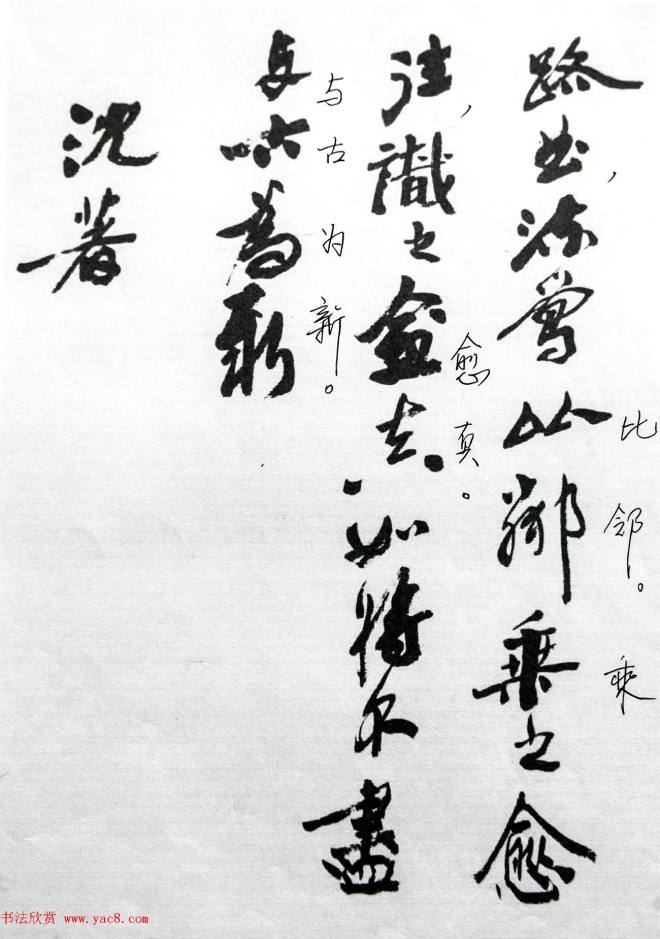 路曲，流鶯比鄰乘之愈
比邻。乘
往，識之愈真如將不盡
愈真。
与古為新
与古为新。
沈著
书法欣赏 www.yac8.com